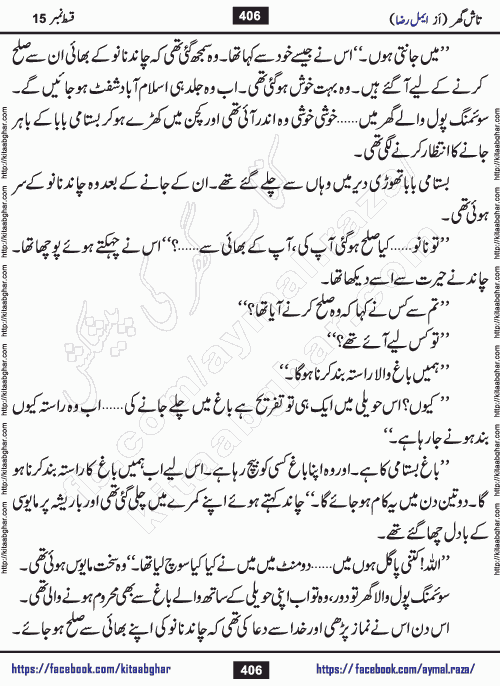 تاش گھر (از ایمل رضا) 406 قسط نمبر 15
’’میں جانتی ہوں۔‘‘ اس نے جیسے خود سے کہا تھا۔ وہ سمجھ گئی تھی کہ چاند نانو کے بھائی ان سے صلح
کرنے کے لیے آگئے ہیں۔ وہ بہت خوش ہو گئی تھی۔ اب وہ جلد ہی اسلام آباد شفٹ ہو جائیں گے۔
سوئمنگ پول والے گھر میں......خوشی خوشی وہ اندر آئی تھی اور کچن میں کھڑے ہو کر بستامی بابا کے باہر
جانے کا انتظار کرنے لگی تھی۔
بستامی بابا تھوڑی دیر میں وہاں سے چلے گئے تھے۔ ان کے جانے کے بعد وہ چاند نانو کے سر
ہوئی تھی۔
’’تو نانو......کیا صلح ہو گئی آپ کی، آپ کے بھائی سے......؟‘‘ اس نے چہکتے ہوئے پوچھا تھا۔
چاند نے حیرت سے اسے دیکھا تھا۔
’’تم سے کس نے کہا کہ وہ صلح کرنے آیا تھا؟‘‘
’’تو کس لیے آئے تھے؟‘‘
’’ہمیں باغ والا راستہ بند کرنا ہو گا۔‘‘
’’کیوں؟ اس حویلی میں ایک ہی تو تفریح ہے باغ میں چلے جانے کی......اب وہ راستہ کیوں
بند ہونے جا رہا ہے۔‘‘
’’باغ بستامی کا ہے۔ اور وہ اپنا باغ کسی کو بیچ رہا ہے۔ اس لیے اب ہمیں باغ کا راستہ بند کرنا ہو
گا۔ دو تین دن میں یہ کام ہو جائے گا۔‘‘ چاند کہتے ہوئے اپنے کمرے میں چلی گئی تھی اور باریشہ پر مایوسی
کے بادل چھا گئے تھے۔
’’اللہ! کتنی پاگل ہوں میں......دو منٹ میں میں نے کیا کیا سوچ لیا تھا۔‘‘ وہ سخت مایوس ہوئی تھی۔
سوئمنگ پول والا گھر تو دور، وہ تو اب اپنی حویلی کے ساتھ والے باغ سے بھی محروم ہونے والی تھی۔
اس دن اس نے نماز پڑھی اور خدا سے دعا کی تھی کہ چاند نانو کی اپنے بھائی سے صلح ہو جائے۔
https://facebook.com/kitaabghar 406 https://facebook.com/aymal.raza/
http://kitaabghar.com http://kitaabghar.com http://kitaabghar.com http://kitaabghar.com http://kitaabghar.com http://kitaabghar.com
http://kitaabghar.com http://kitaabghar.com http://kitaabghar.com http://kitaabghar.com http://kitaabghar.com http://kitaabghar.com